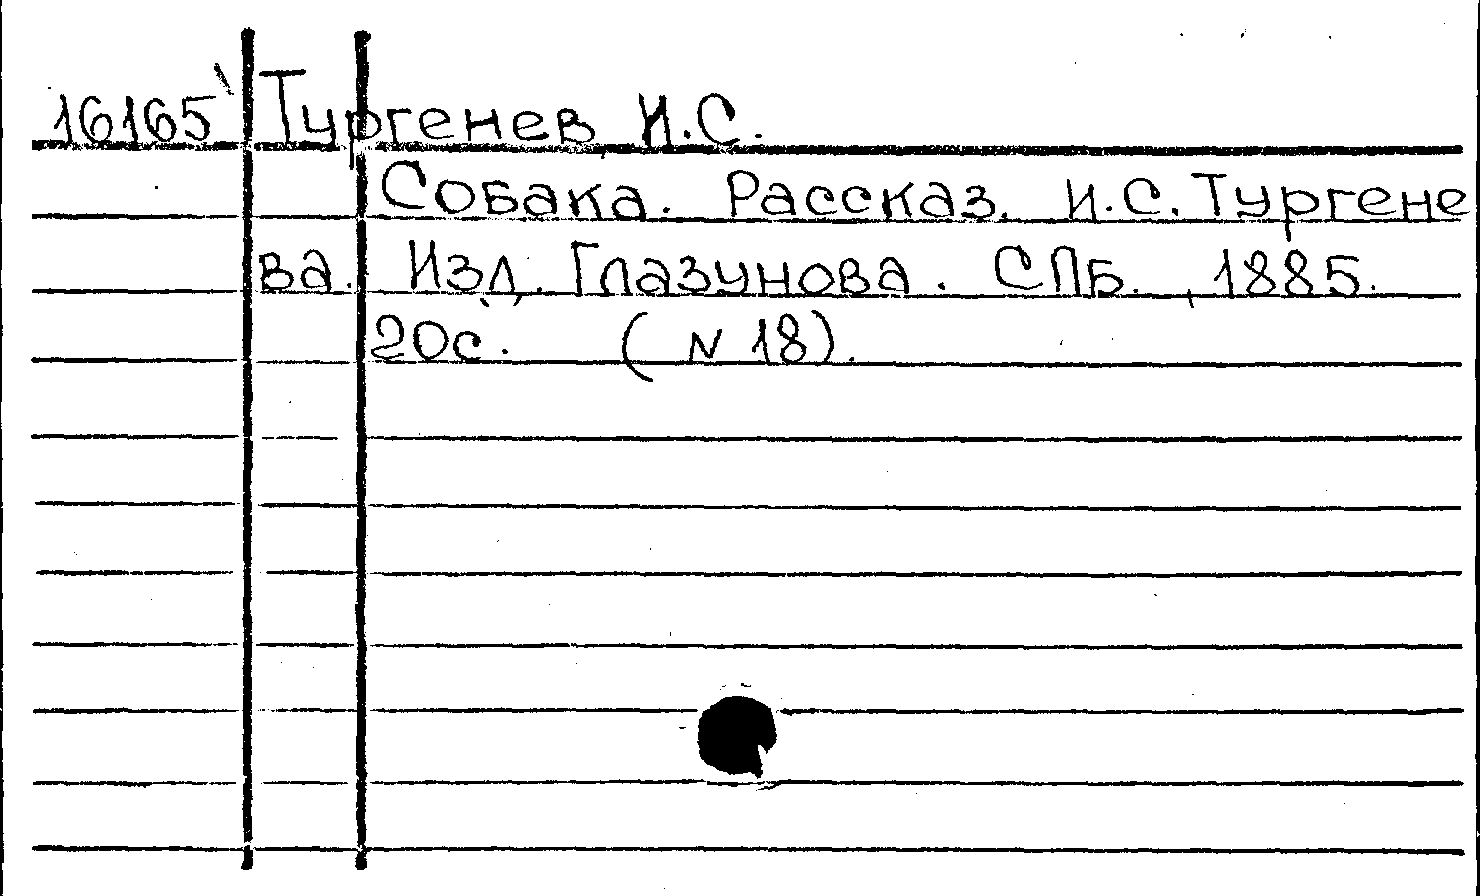 16165 Тургенев, И.С.
Собака. Рассказ. И.С. Тургене
ва. Изд. Глазунова. СПБ., 1885.
20с. (N 18).